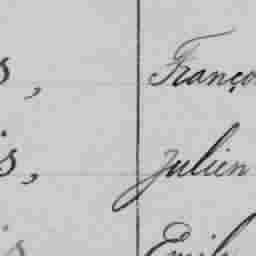 s, Franço
is, Julien
is Emil